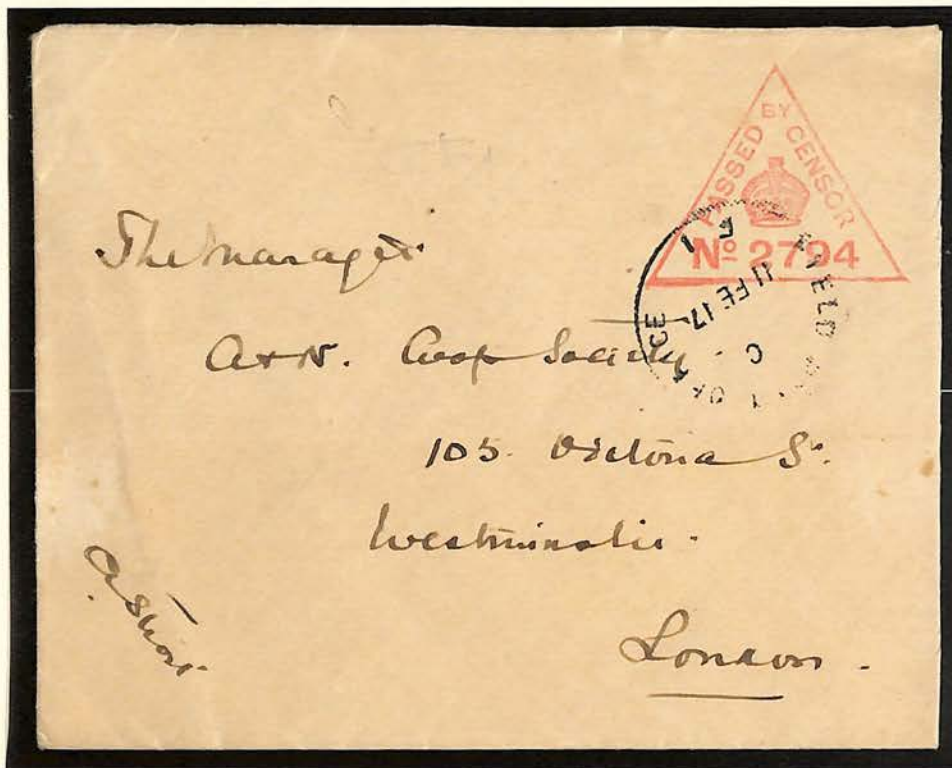 PASSED BY CENSOR
Nº 2794
FIELD POST OFFICE
11 FE 17
C
The Manager
A & N. Coop Society.
105. Victoria St.
Westminster.
London.